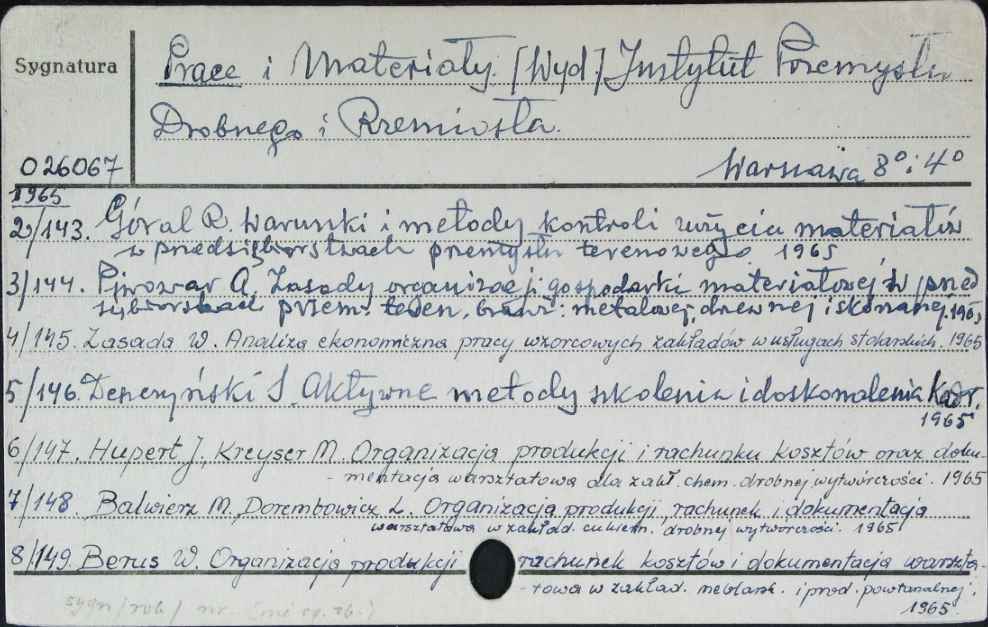 Sygnatura
Prace i Materiały. [Wyd.] Instytut Przemysłu
Drobnego i Rzemiosła.
026067
Warszawa 8° i 4°
1965
2/143. Góral R. Warunki i metody kontroli zużycia materiałów
w przedsiębiorstwach przemysłu terenowego. 1965
3/144. Piwowar A. Zasady organizacji gospodarki materiałowej w przed
siębiorstwach przem. teren. branż: metalowej, drzewnej i skórzanej. 1965
4/145. Zasada W. Analiza ekonomiczna pracy wzorcowych zakładów w usługach stolarskich. 1965
5/146. S. Aktywne metody szkolenia i doskonalenia kadr.
1965
6/147. Hupert J., Kreyser M. Organizacja produkcji i rachunku kosztów oraz doku-
- mentacja warsztatowa dla zakł. chem. drobnej wytwórczości. 1965
7/148. Balwierz M., Dorembowicz L. Organizacja produkcji, rachunek i dokumentacja
warsztatowa w zakład. cukiern. drobnej wytwórczości. 1965
8/149. Berus W. Organizacja produkcji rachunek kosztów i dokumentacja warszta-
- towa w zakład. meblarsk. i prod. powtarzalnej.
1965.
sygn/rok/ nr.